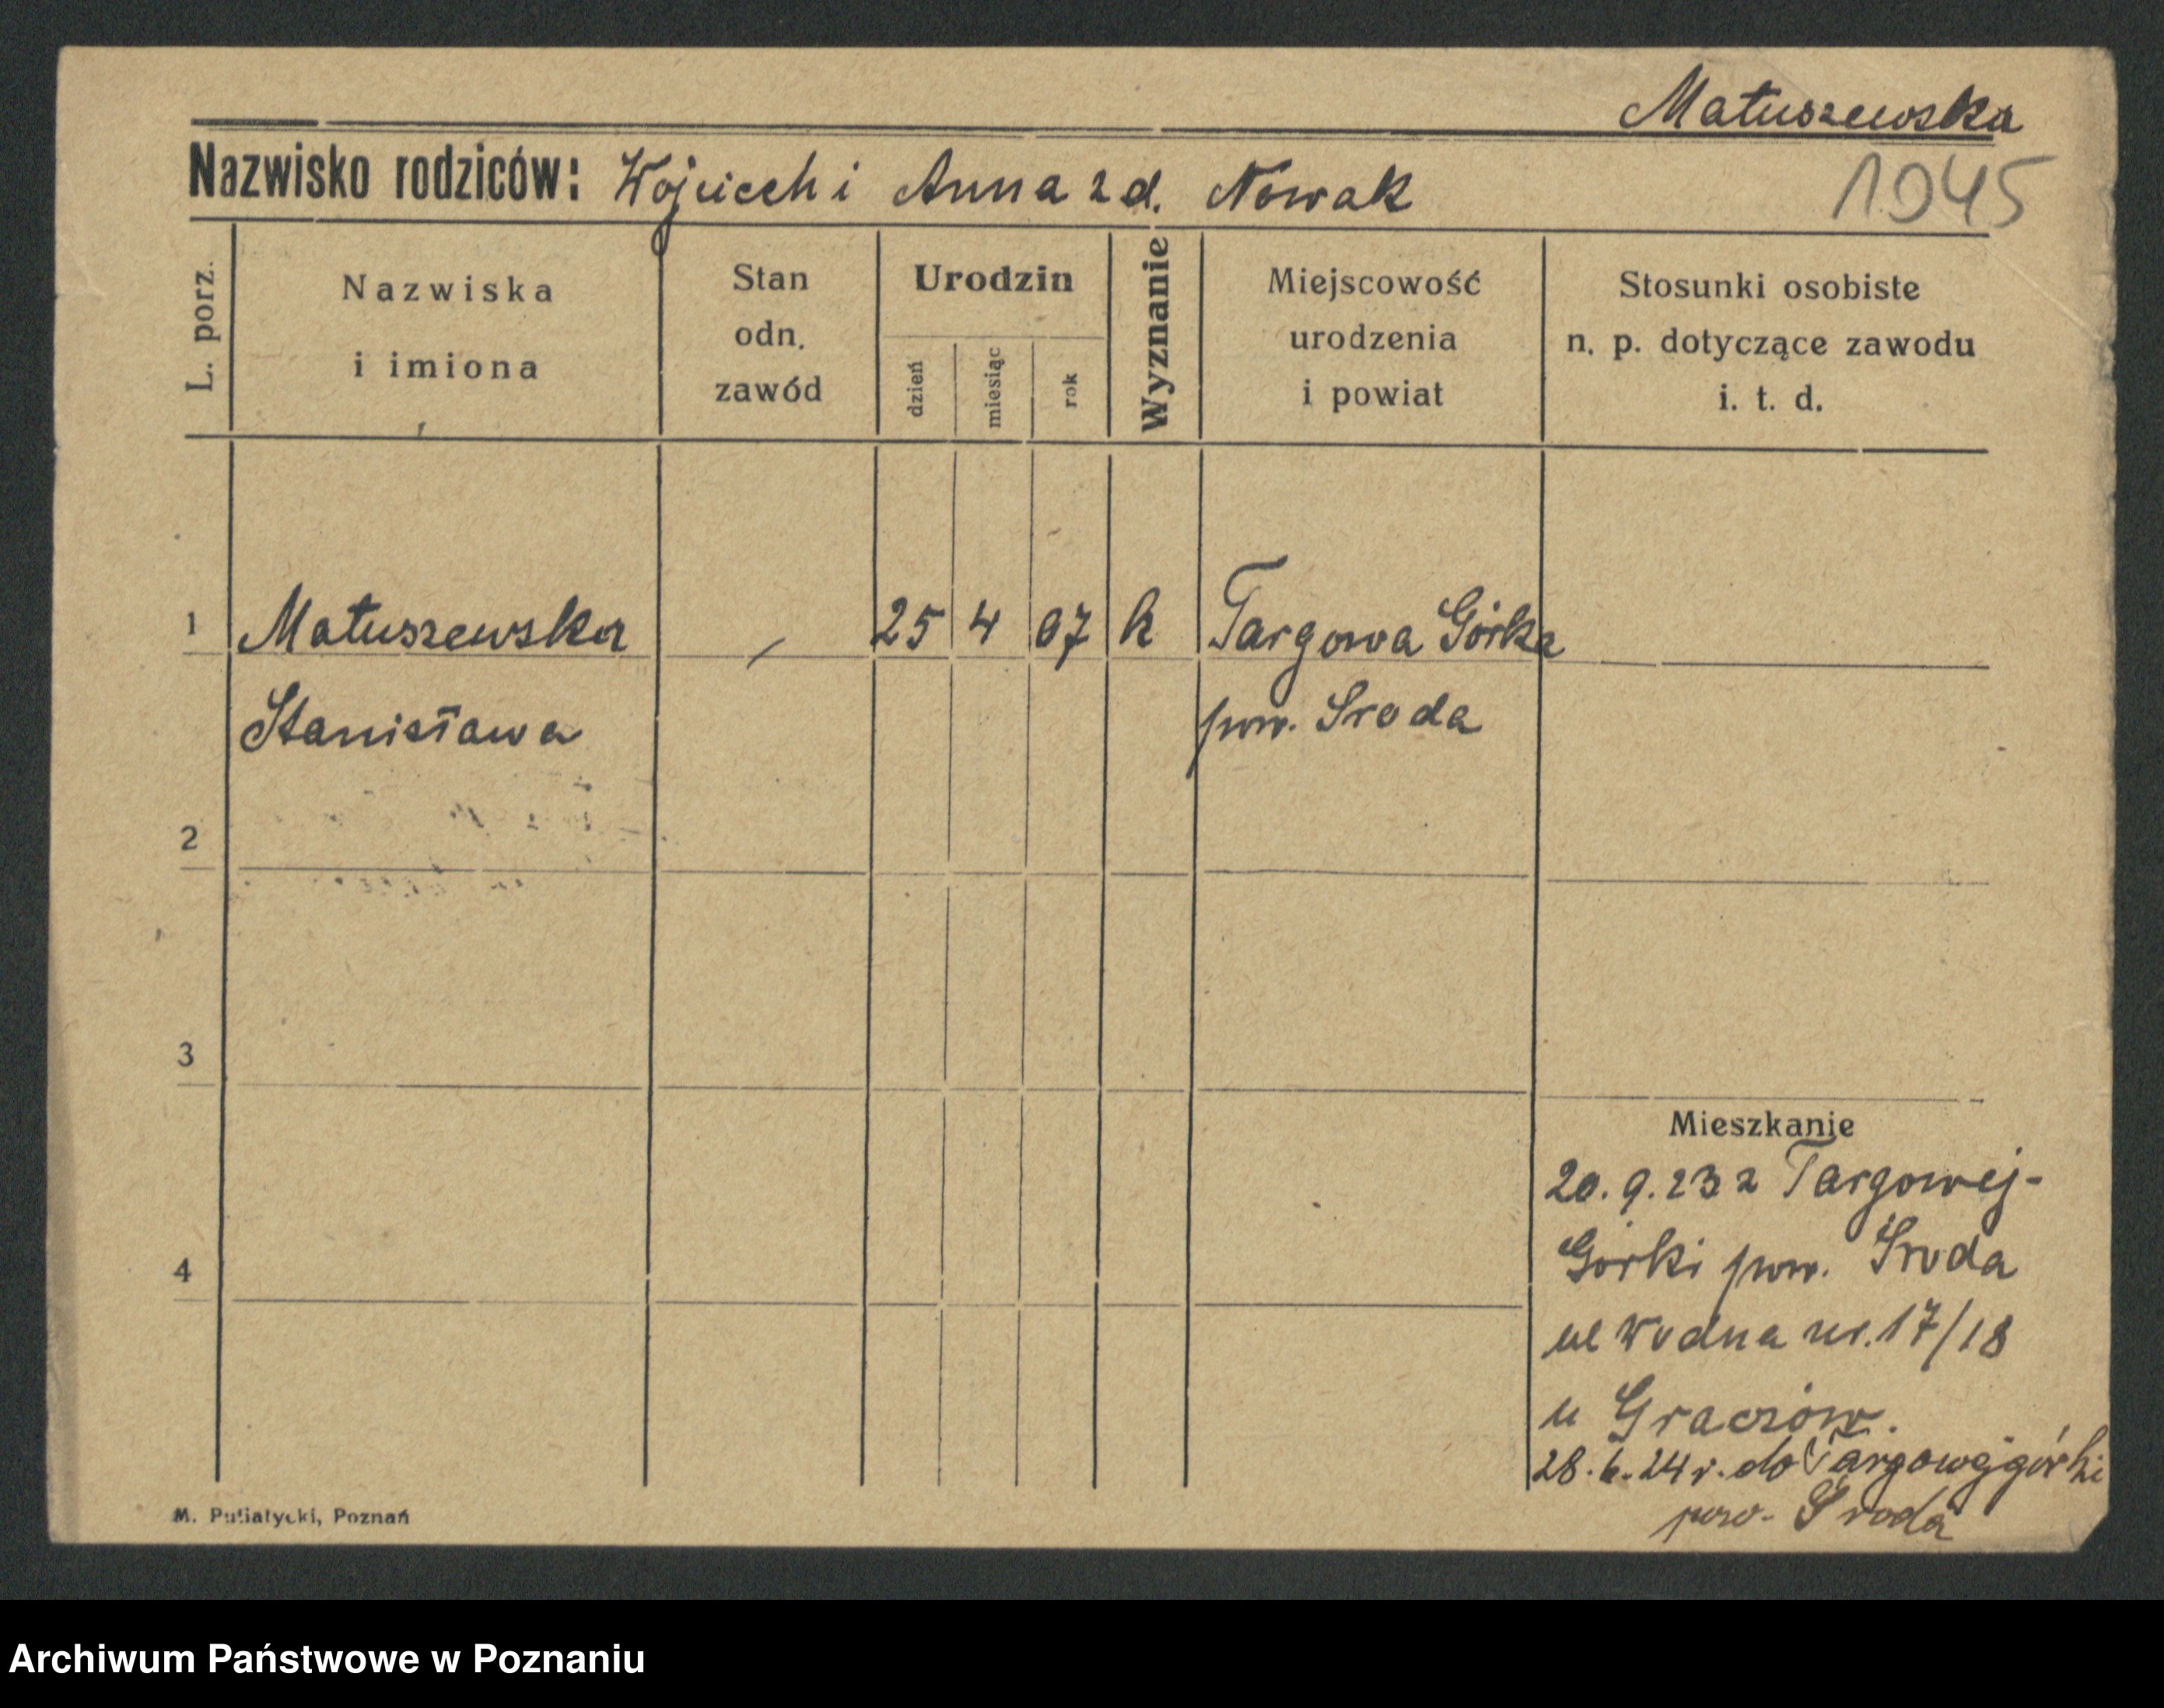 Matuszewska
Nazwisko rodziców: Wojciech i Anna z d. Nowak
1945
L. porz.
Nazwiska
i imiona
Stan
odn.
zawód
Urodzin
dzień
miesiąc
rok
Wyznanie
Miejscowość
urodzenia
i powiat
Stosunki osobiste
n. p. dotyczące zawodu
i. t. d.
1 Matuszewska - 25 4 07 k Targowa Górka
Stanisława pow. Sroda
2
3
4
Mieszkanie
20.9.23 z Targowej-
Górki pow. Sroda
ul Wodna nr. 17/18
u Graczów.
28.6.24 r. do Targowejgórki
pow. Sroda
M. Putiatycki, Poznań
Archiwum Państwowe w Poznaniu